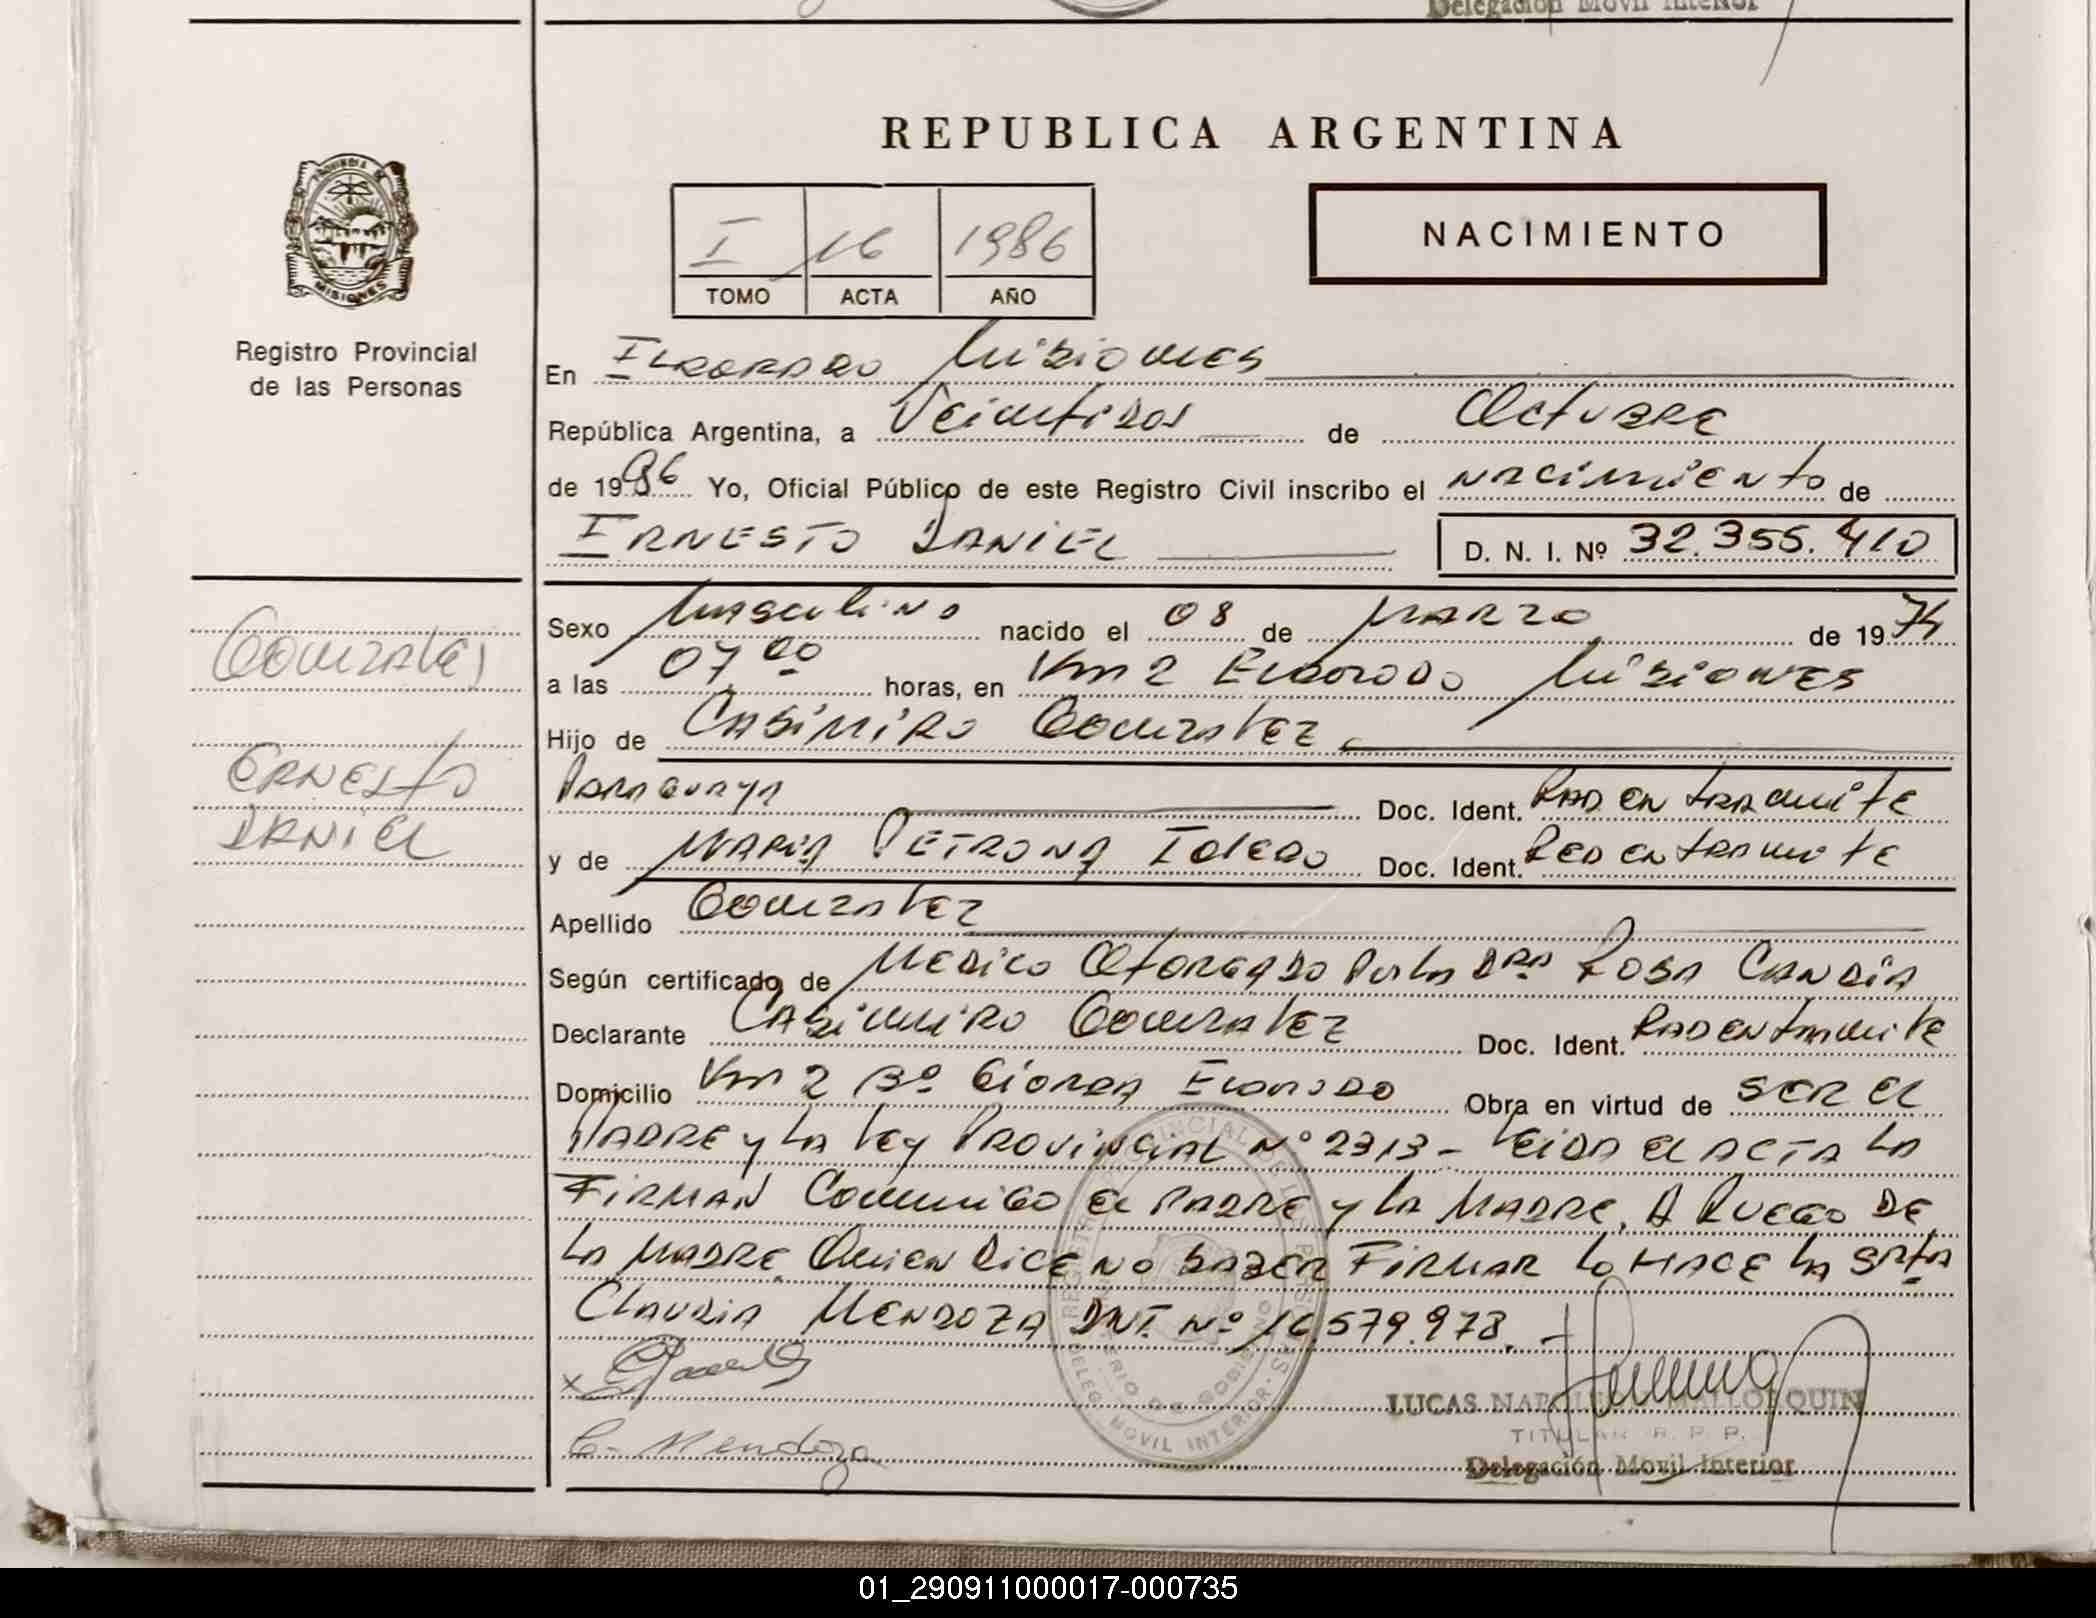 Delegación Movil Interior
REPUBLICA ARGENTINA
PROVINCIA DE
MISIONES
I 16 1986
TOMO ACTA AÑO
NACIMIENTO
Registro Provincial
de las Personas
En ELDORADO Misiones
República Argentina, a Veintidos de Octubre
de 1986 Yo, Oficial Público de este Registro Civil inscribo el nacimiento de
ERNESTO DANIEL D. N. I. Nº 32.355.410
Gonzalez
ERNESTO
DANIEL
Sexo Masculino nacido el 08 de MARZO de 1974
a las 07,00 horas, en Km 2 Eldorado Misiones
Hijo de CASIMIRO Gonzalez
Paraguaya Doc. Ident. RAD EN tramite
y de MARIA PETRONA Toledo Doc. Ident. RAD EN tramite
Apellido Gonzalez
Según certificado de MEDICO Otorgado Por la DRA ROSA CANDIA
Declarante CASIMIRO Gonzalez Doc. Ident. RAD EN tramite
Domicilio Km 2 Bº Eldorado Obra en virtud de SER El
PADRE y LA Ley PROVINCIAL Nº 2313- Leida el ACTA LA
FIRMAN Conmigo el PADRE y La MADRE. A RUEGO DE
LA MADRE Quien Dice no SABER FIRMAR Lo HACE La SRTA
CLAUDIA MENDOZA DNI. Nº 16.579.978.-
x
C. Mendoza
REGISTRO PROVINCIAL DE LAS PERSONAS
MINISTERIO DE GOBIERNO
DELEG. MOVIL INTERIOR
LUCAS NAPOLEON MALLORQUIN
TITULAR R. P. P.
Delegación Movil Interior
01_290911000017-000735